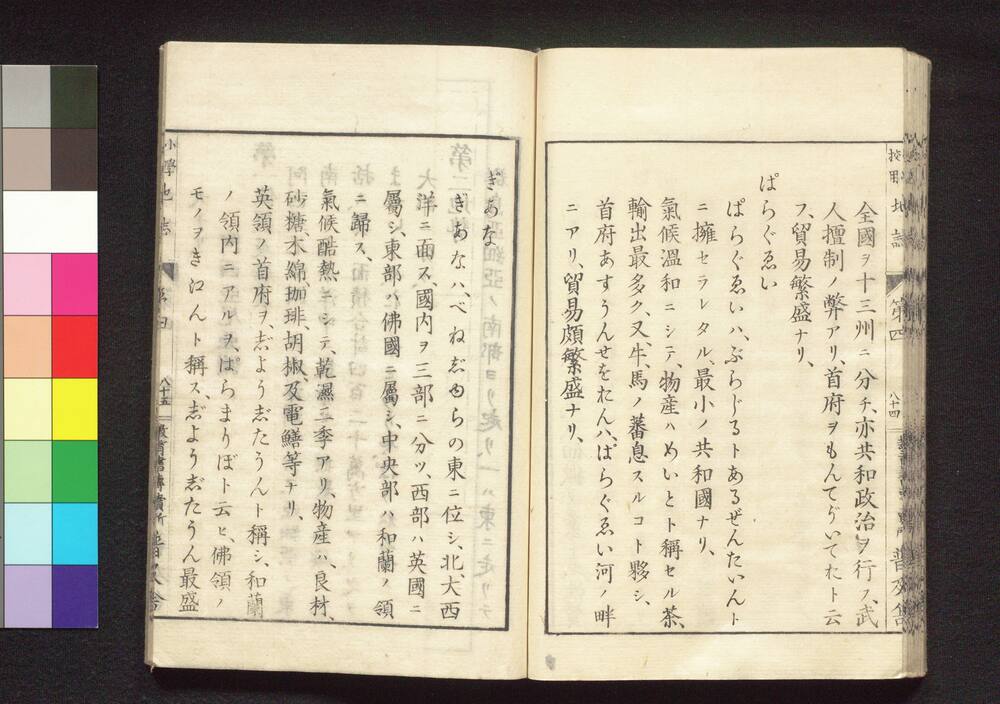 全國ヲ十三州ニ分チ、亦共和政治ヲ行フ、武
人擅制ノ弊アリ、首府ヲもんてびいでおト云
フ、貿易繁盛ナリ、
ぱらぐゑい
ぱらぐゑいハ、ぶらじるトあるぜんたいんト
ニ擁セラレタル、最小ノ共和國ナリ、
氣候溫和ニシテ、物産ハめいとト稱セル茶、
輸出最多ク、又、牛、馬ノ蕃息スルコト夥シ、
首府あすうんせおんハ、ぱらぐゑい河ノ畔
ニアリ、貿易頗繁盛ナリ、
校用 地誌 第四 八十四
小學地誌 第四 八十五
ぎあな
ぎあなハ、べねぢゆらの東ニ位シ、北、大西
洋ニ面ス、國内ヲ三部ニ分ツ、西部ハ英國ニ
屬シ、東部ハ佛國ニ屬シ、中央部ハ和蘭ノ領
ニ歸ス、
氣候酷熱ニシテ、乾濕二季アリ、物産ハ、良材、
砂糖、木綿、珈琲、胡椒及電鱔等ナリ、
英領ノ首府ヲ、ぢようぢたうんト稱シ、和蘭
ノ領内ニアルヲ、ぱらまりぼト云ヒ、佛領ノ
モノヲきえんト稱ス、ぢようぢたうん最盛